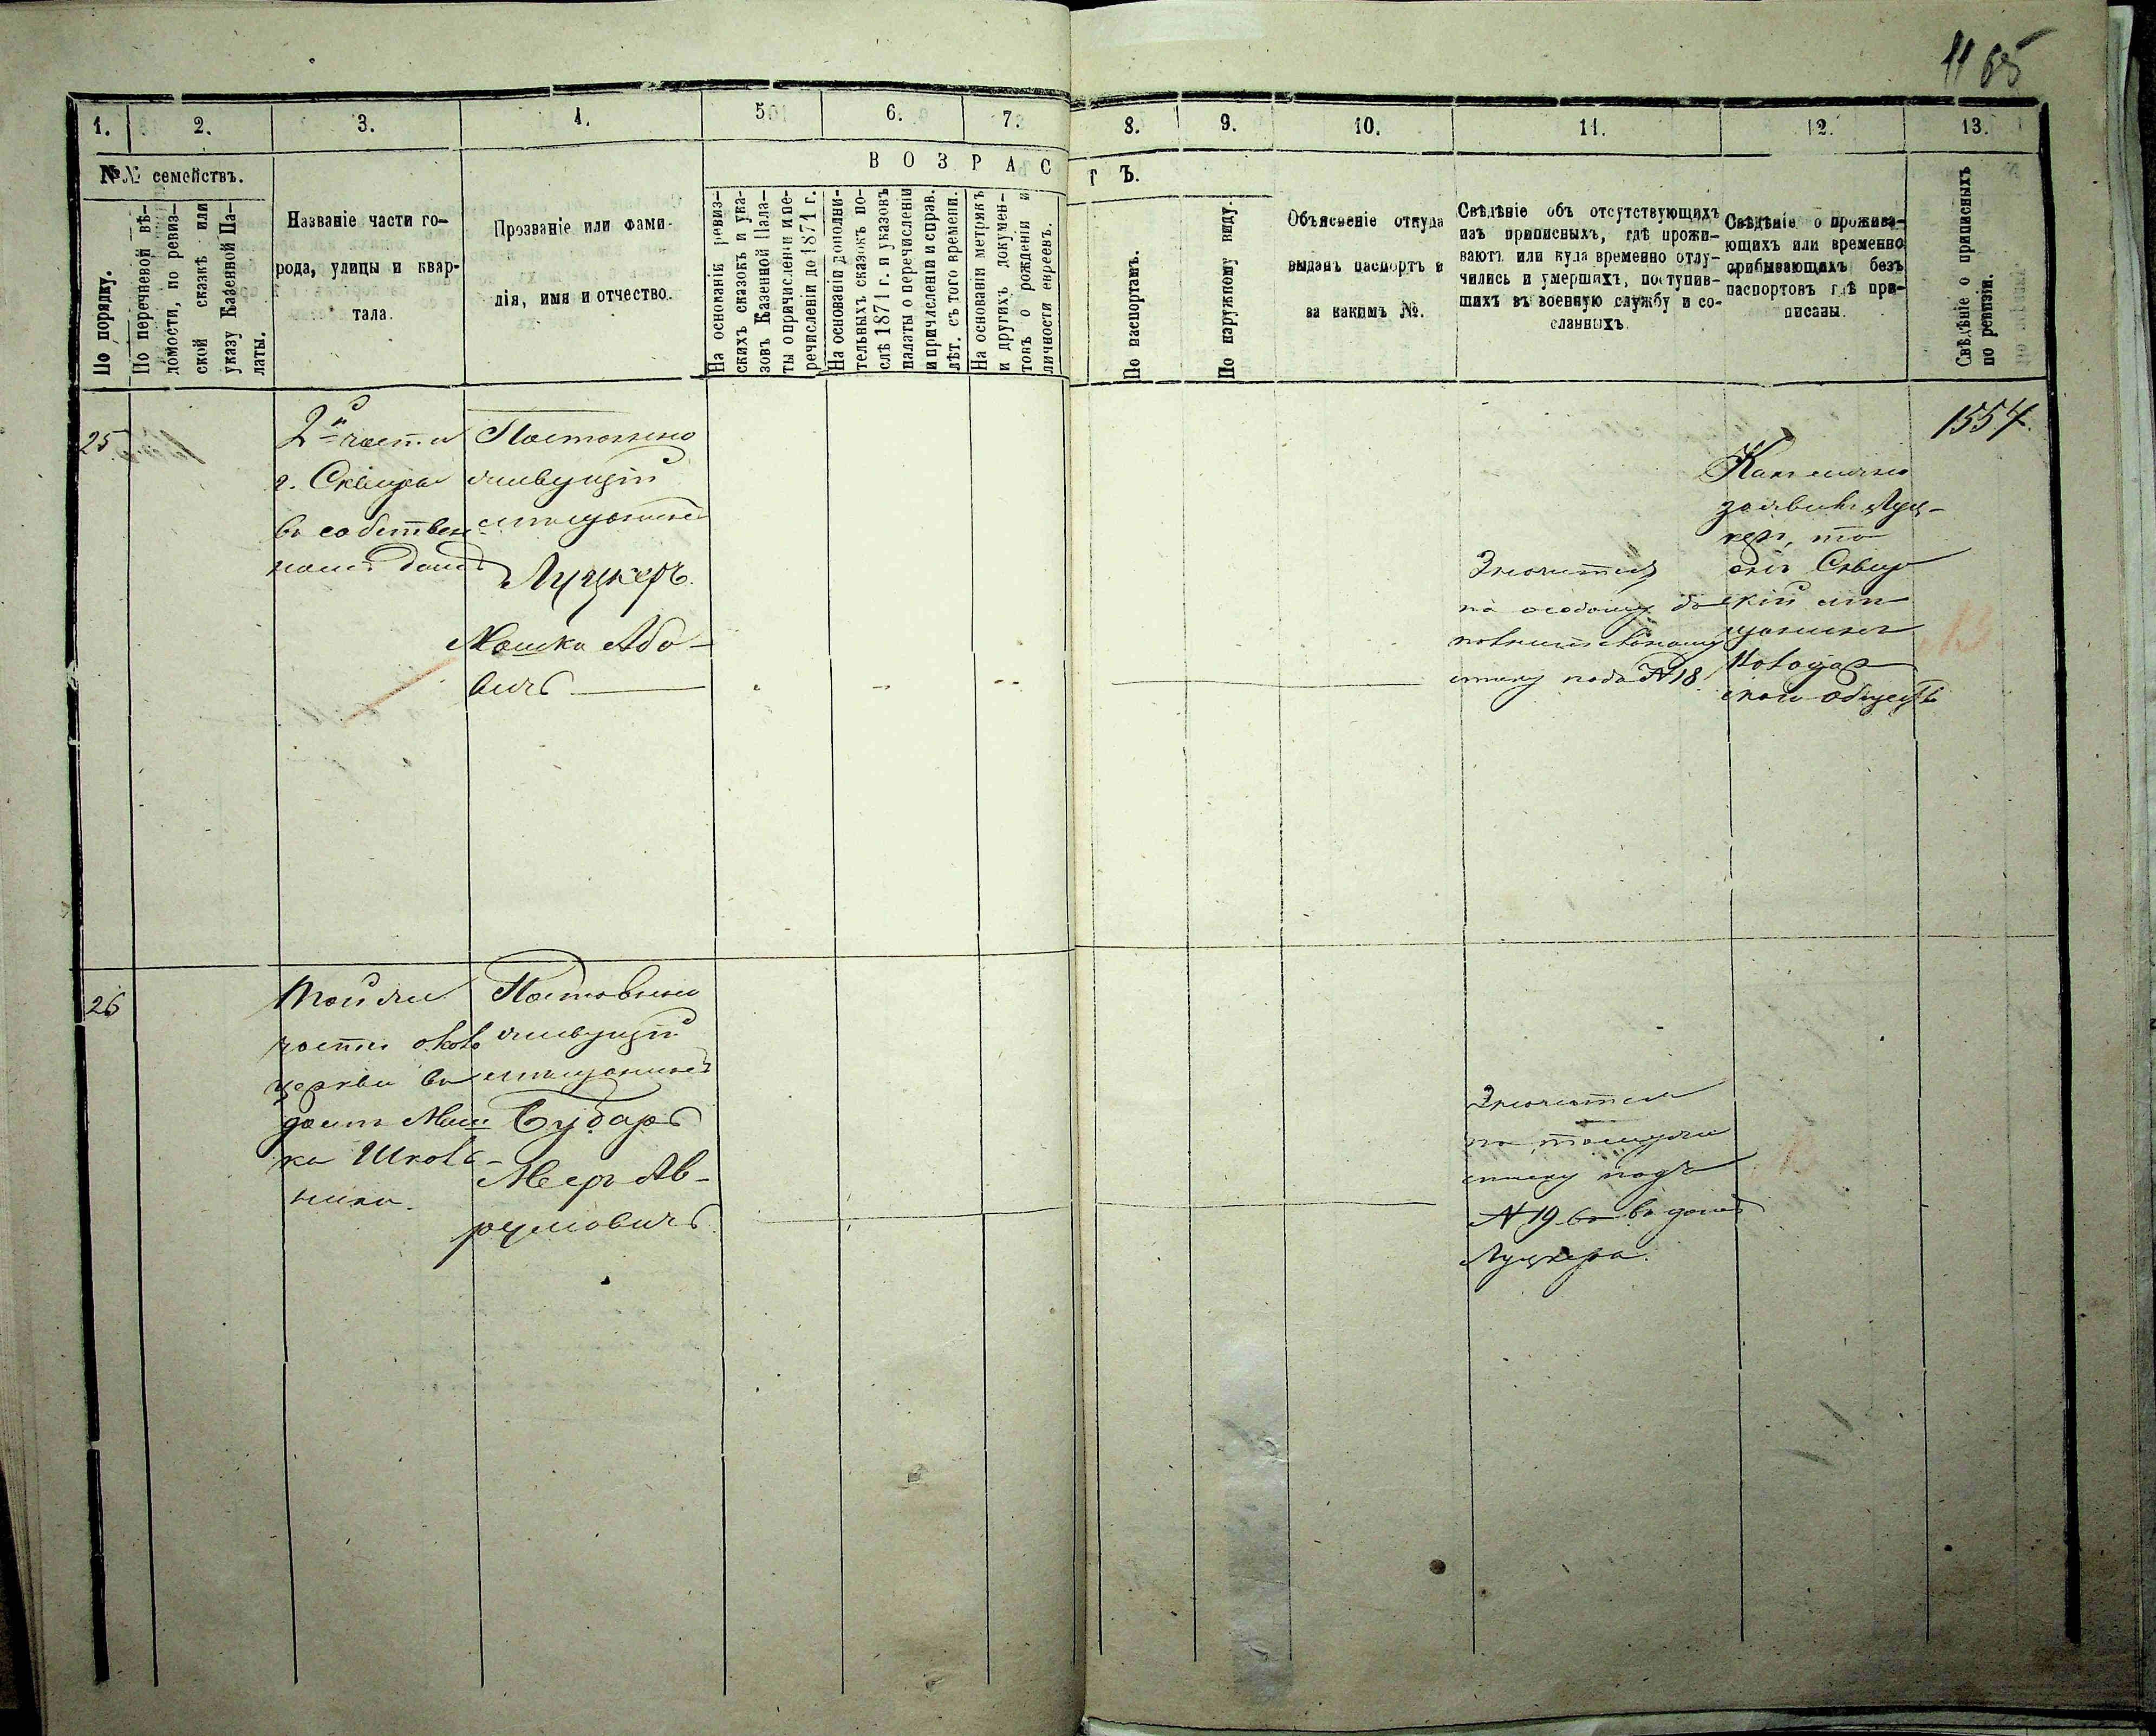 11 65
1.
2.
3.
4.
5
6.
7.
8.
9.
10.
11.
12.
13.
№№ семействъ.
По порядку.
По перечневой вѣ-
домости, по ревиз-
ской сказкѣ или
указу Казенной Па-
латы.
Названіе части го-
рода, улицы и квар-
тала.
Прозваніе или фами-
лія, имя и отчество.
ВОЗРАС
ТЪ.
На основаніи ревиз-
скихъ сказокъ и ука-
зовъ Казенной Пала-
ты о причисленіи и пе-
речисленіи до 1871 г.
На основаніи дополни-
тельныхъ сказокъ по-
слѣ 1871 г. и указовъ
палаты о перечисленіи
и причисленіи и справ.
лѣт. съ того времени.
На основаніи метрикъ
и другихъ докумен-
товъ о рожденіи и
личности евреевъ.
По паспортамъ.
По наружному виду.
Объясненіе откуда
выданъ паспортъ и
за какимъ №.
Свѣдѣніе объ отсутствующихъ
изъ приписныхъ, гдѣ прожи-
ваютъ или куда временно отлу-
чились и умершихъ, поступив-
шихъ въ военную службу и со-
сланныхъ.
Свѣдѣніе о прожива-
ющихъ или временно
прибывающихъ безъ
паспортовъ гдѣ при-
писаны.
Свѣдѣніе о приписныхъ
по ревизіи.
25.
2й части
г. Сквира
въ собствен-
номъ домѣ
Постоянно
живущій
мѣщанинъ
Луцкеръ.
Мошко Або-
вичъ
Значится
по особому до-
полнительному
списку подъ № 18.
заявилъ Луц-
керъ, то
онъ Сквир
скій мѣ
щанинъ
скаго общества
1557.
26
Той же
части около
церкви въ
домѣ Мош
ка Школь-
ника.
Постоянно
живущій
мѣщанинъ
Бубаръ
Мееръ Ав-
румовичъ
Значится
по тому же
списку подъ
№ 19 въ домѣ
Луцкера.